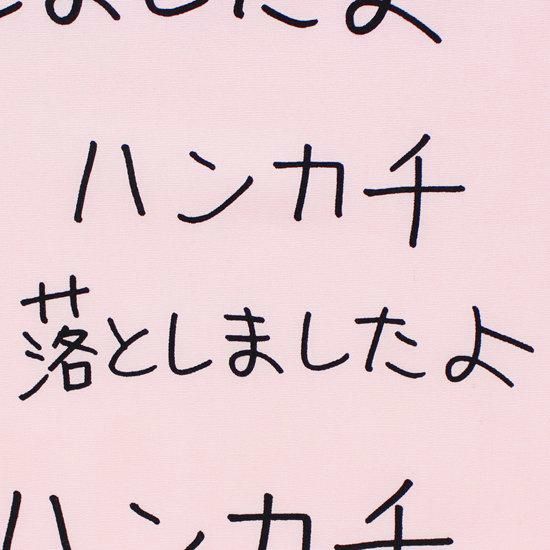 しましたよ
ハンカチ
落としましたよ
ハンカチ